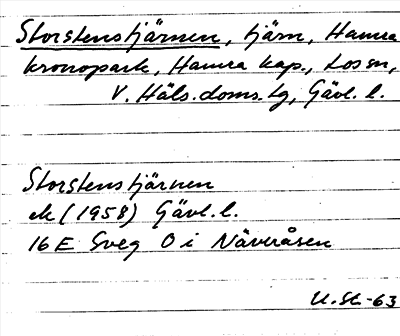 Storstenstjärnen, tjärn, Hamra
kronopark, Hamra kap., Los sn,
V. Häls. doms. tg, Gävl. l.
Storstenstjärnen
ek (1958) Gävl. l.
16 E Sveg O i Näveråsen
U. St. -63